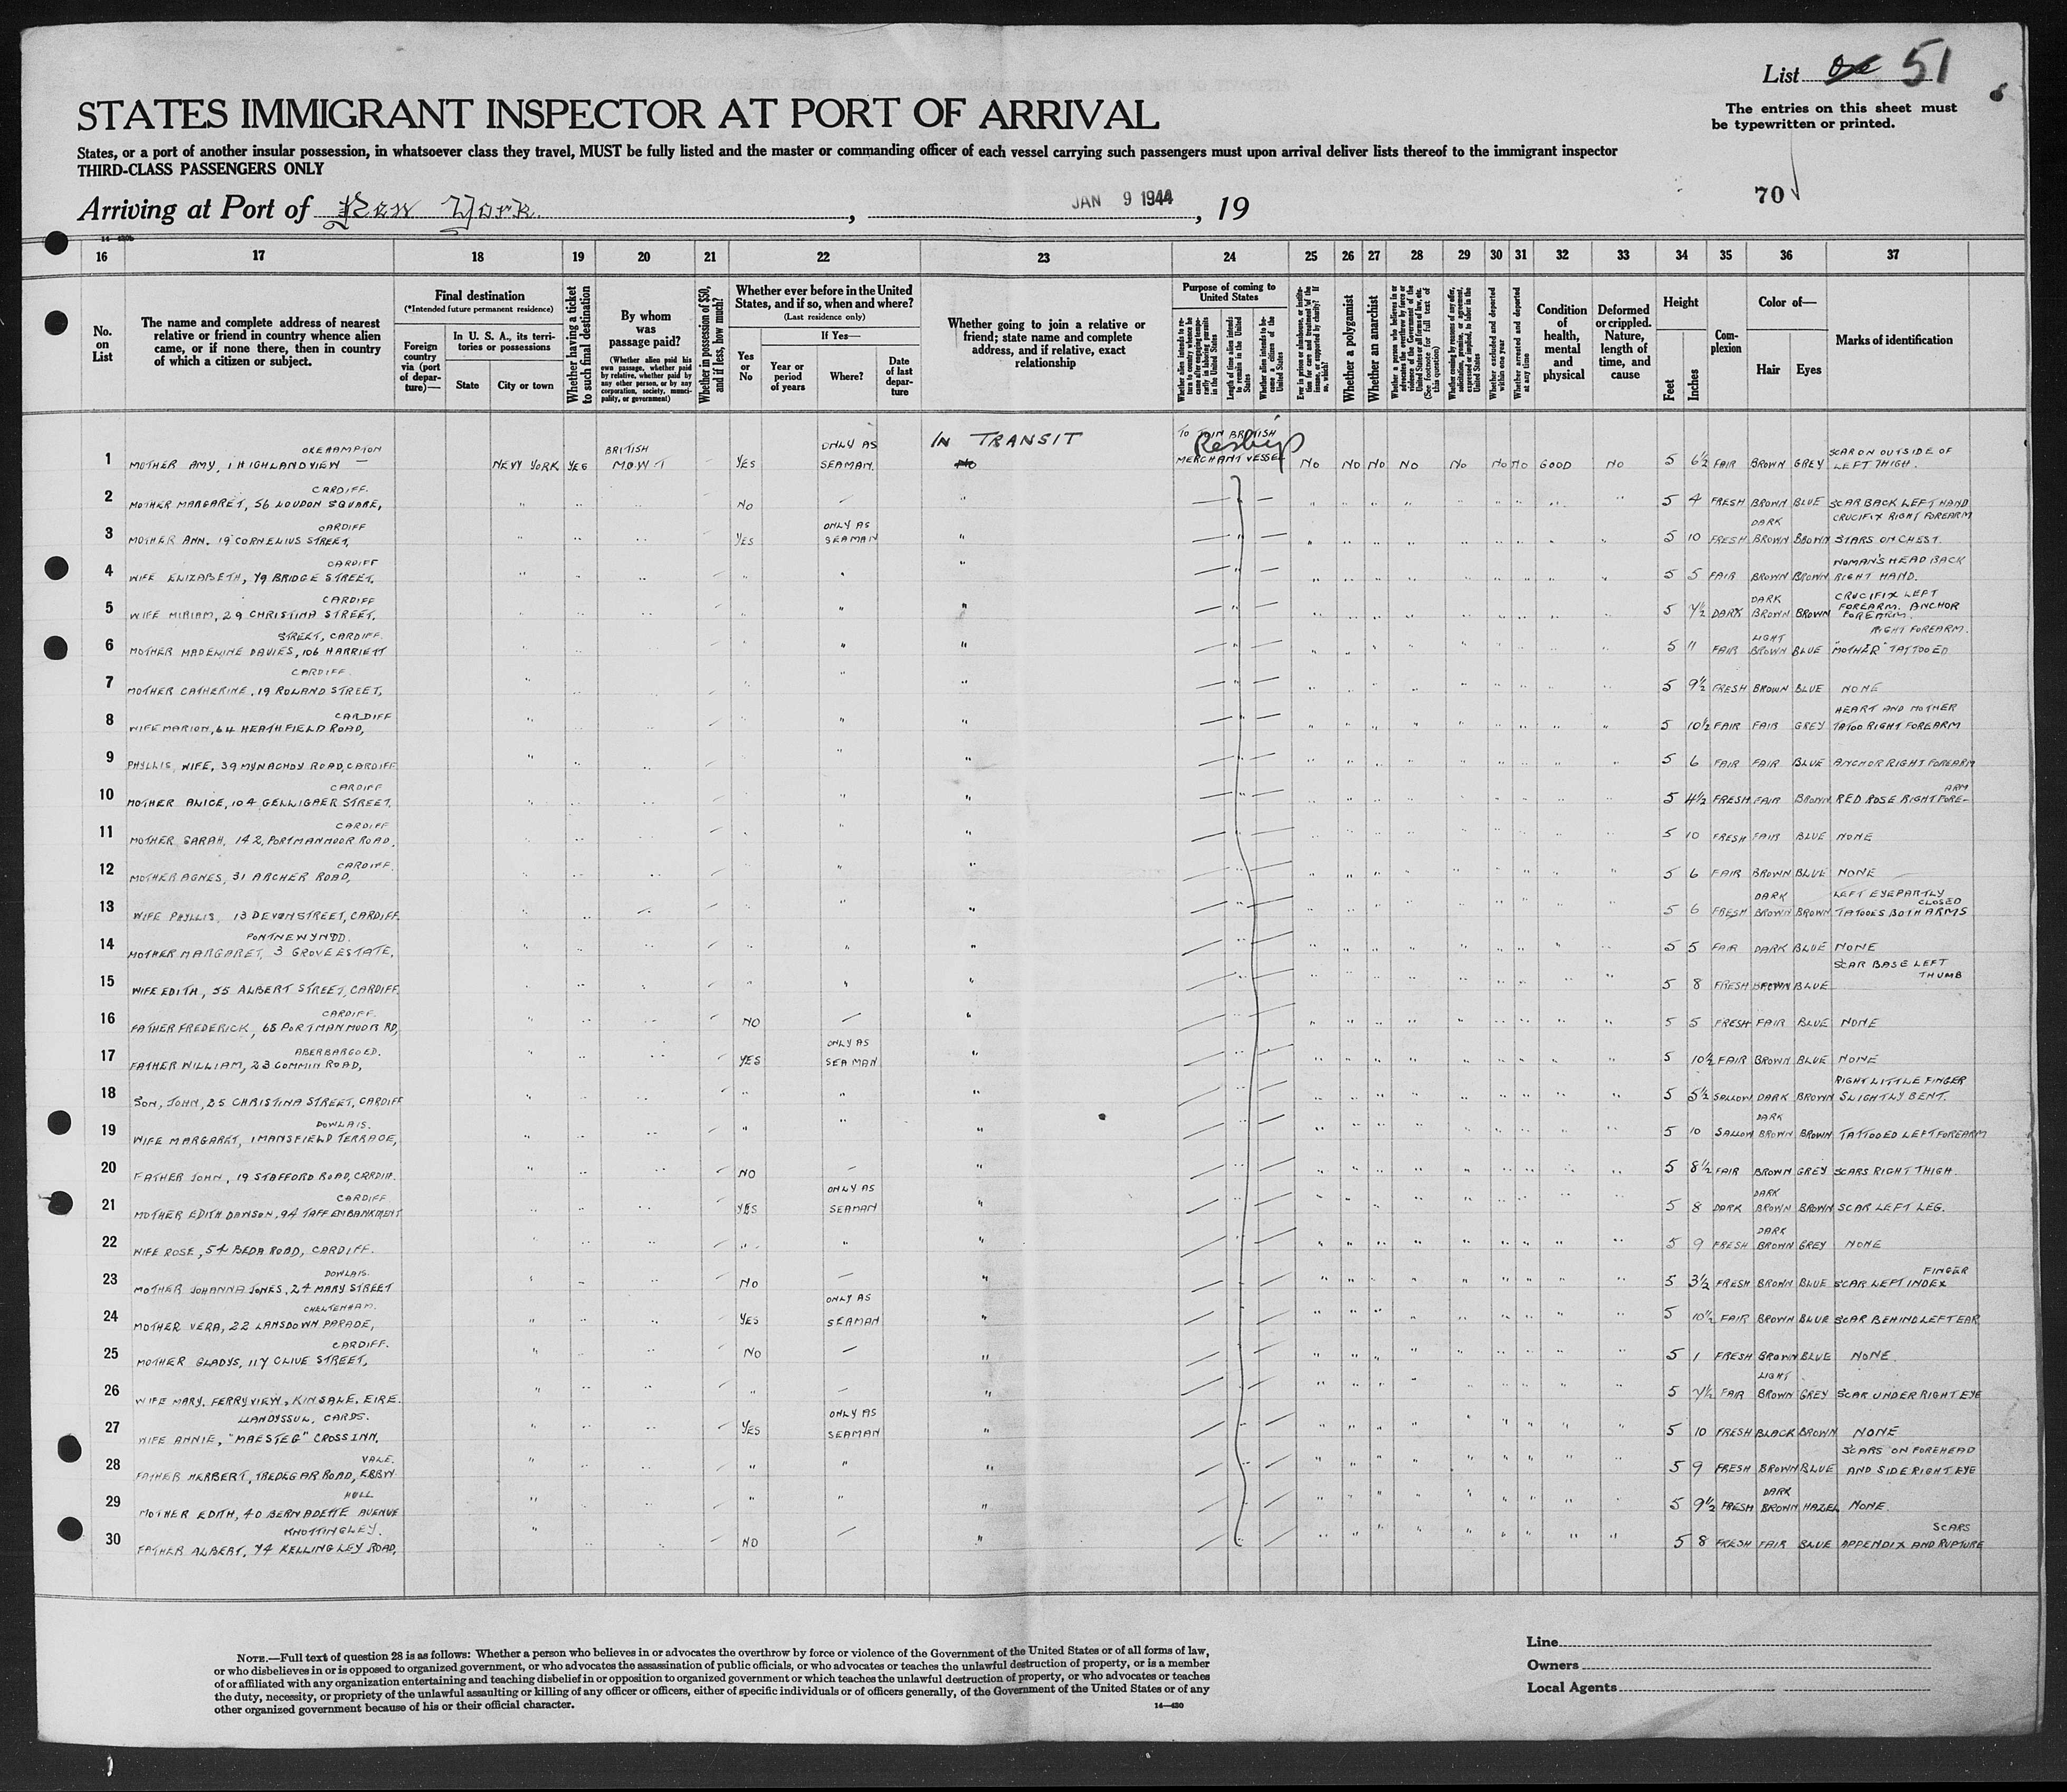 List One 51
STATES IMMIGRANT INSPECTOR AT PORT OF ARRIVAL
The entries on this sheet must
be typewritten or printed.
States, or a port of another insular possession, in whatsoever class they travel, MUST be fully listed and the master or commanding officer of each vessel carrying such passengers must upon arrival deliver lists thereof to the immigrant inspector
THIRD-CLASS PASSENGERS ONLY
70
Arriving at Port of New York, JAN 9 1944, 19
16 17 18 19 20 21 22 23 24 25 26 27 28 29 30 31 32 33 34 35 36 37
No. on List
The name and complete address of nearest relative or friend in country whence alien came, or if none there, then in country of which a citizen or subject.
Final destination
(*Intended future permanent residence)
Foreign country via (port of departure)—
In U. S. A., its territories or possessions
State
City or town
Whether having a ticket to such final destination
By whom was passage paid?
(Whether alien paid his own passage, whether paid by relative, whether paid by any other person, or by any corporation, society, municipality, or government)
Whether in possession of $50, and if less, how much?
Whether ever before in the United States, and if so, when and where?
(Last residence only)
Yes or No
If Yes—
Year or period of years
Where?
Date of last departure
Whether going to join a relative or friend; state name and complete address, and if relative, exact relationship
Purpose of coming to United States
Length of time alien intends to remain in the United States
Whether alien intends to become a citizen of the United States
Whether a polygamist
Whether an anarchist
Whether excluded and deported within one year
Whether arrested and deported at any time
Condition of health, mental and physical
Deformed or crippled. Nature, length of time, and cause
Height
Feet
Inches
Complexion
Color of—
Hair
Eyes
Marks of identification
1 MOTHER AMY, 1 HIGHLAND VIEW OKEHAMPTON — NEW YORK YES BRITISH M.O.W.T YES ONLY AS SEAMAN. IN TRANSIT No TO JOIN BRITISH MERCHANT VESSEL No No No No No No No GOOD No 5 6½ FAIR BROWN GREY SCAR ON OUTSIDE OF LEFT THIGH.
2 MOTHER MARGARET, 56 LOUDON SQUARE, CARDIFF. NO — 5 4 FRESH BROWN BLUE SCAR BACK LEFT HAND
3 MOTHER ANN. 19 CORNELIUS STREET, CARDIFF YES ONLY AS SEAMAN 5 10 FRESH DARK BROWN BROWN CRUCIFIX RIGHT FOREARM STARS ON CHEST.
4 WIFE ELIZABETH, 79 BRIDGE STREET, CARDIFF " 5 5 FAIR BROWN BROWN WOMAN'S HEAD BACK RIGHT HAND.
5 WIFE MIRIAM, 29 CHRISTINA STREET, CARDIFF " 5 7½ DARK DARK BROWN BROWN CRUCIFIX LEFT FOREARM. ANCHOR FOREARM.
6 MOTHER MADELINE DAVIES, 106 HARRIETT STREET, CARDIFF. " 5 11 FAIR LIGHT BROWN BLUE "MOTHER" TATTOOED RIGHT FOREARM.
7 MOTHER CATHERINE, 19 ROLAND STREET, CARDIFF. " 5 9½ FRESH BROWN BLUE NONE
8 WIFE MARION, 64 HEATHFIELD ROAD, CARDIFF " 5 10½ FAIR FAIR GREY HEART AND MOTHER TATOO RIGHT FOREARM
9 PHYLLIS WIFE, 39 MYNACHDY ROAD, CARDIFF. " 5 6 FAIR FAIR BLUE ANCHOR RIGHT FOREARM
10 MOTHER ALICE, 104 GELLIGAER STREET, CARDIFF " 5 4½ FRESH FAIR BROWN RED ROSE RIGHT FORE-ARM
11 MOTHER SARAH, 142, PORTMANMOOR ROAD, CARDIFF " 5 10 FRESH FAIR BLUE NONE
12 MOTHER AGNES, 31 ARCHER ROAD, CARDIFF. " 5 6 FAIR BROWN BLUE NONE
13 WIFE PHYLLIS, 13 DEVON STREET, CARDIFF. " 5 6 FRESH DARK BROWN BROWN LEFT EYE PARTLY CLOSED TATOOES BOTH ARMS
14 MOTHER MARGARET, 3 GROVE ESTATE, PONTNEWYNDD. " 5 5 FAIR DARK BLUE NONE
15 WIFE EDITH, 55 ALBERT STREET, CARDIFF. " 5 8 FRESH BROWN BLUE SCAR BASE LEFT THUMB
16 FATHER FREDERICK, 68 PORTMANMOOR RD, CARDIFF. NO — 5 5 FRESH FAIR BLUE NONE
17 FATHER WILLIAM, 23 COMMIN ROAD, ABERBARGOED. YES ONLY AS SEAMAN 5 10½ FAIR BROWN BLUE NONE
18 SON, JOHN, 25 CHRISTINA STREET, CARDIFF " 5 5½ SALLOW DARK BROWN RIGHT LITTLE FINGER SLIGHTLY BENT.
19 WIFE MARGARET, 1 MANSFIELD TERRACE, DOWLAIS. " 5 10 SALLOW DARK BROWN BROWN TATTOOED LEFT FOREARM
20 FATHER JOHN, 19 STAFFORD ROAD, CARDIFF. NO — 5 8½ FAIR BROWN GREY SCARS RIGHT THIGH.
21 MOTHER EDITH DAWSON, 94 TAFF EMBANKMENT CARDIFF. YES ONLY AS SEAMAN 5 8 DARK DARK BROWN BROWN SCAR LEFT LEG.
22 WIFE ROSE, 54 BEDA ROAD, CARDIFF. " 5 9 FRESH DARK BROWN GREY NONE
23 MOTHER JOHANNA JONES, 24 MARY STREET DOWLAIS. NO — 5 3½ FRESH BROWN BLUE SCAR LEFT INDEX FINGER
24 MOTHER VERA, 22 LANSDOWN PARADE, CHELTENHAM. YES ONLY AS SEAMAN 5 10½ FAIR BROWN BLUE SCAR BEHIND LEFT EAR
25 MOTHER GLADYS, 117 CLIVE STREET, CARDIFF. NO — 5 1 FRESH BROWN BLUE NONE.
26 WIFE MARY. FERRYVIEW, KINSALE, EIRE. " — 5 7½ FAIR LIGHT BROWN GREY SCAR UNDER RIGHT EYE
27 WIFE ANNIE, "MAESTEG" CROSS INN, LLANDYSSUL, CARDS. YES ONLY AS SEAMAN 5 10 FRESH BLACK BROWN NONE
28 FATHER HERBERT, TREDEGAR ROAD, EBBW VALE. " " 5 9 FRESH BROWN BLUE SCARS ON FOREHEAD AND SIDE RIGHT EYE
29 MOTHER EDITH, 40 BERNADETTE AVENUE HULL " " 5 9½ FRESH DARK BROWN HAZEL NONE.
30 FATHER ALBERT, 74 KELLINGLEY ROAD, KNOTTINGLEY. NO — 5 8 FRESH FAIR BLUE APPENDIX AND RUPTURE SCARS
NOTE.—Full text of question 28 is as follows: Whether a person who believes in or advocates the overthrow by force or violence of the Government of the United States or of all forms of law,
or who disbelieves in or is opposed to organized government, or who advocates the assassination of public officials, or who advocates or teaches the unlawful destruction of property, or is a member
of or affiliated with any organization entertaining and teaching disbelief in or opposition to organized government or which teaches the unlawful destruction of property, or who advocates or teaches
the duty, necessity, or propriety of the unlawful assaulting or killing of any officer or officers, either of specific individuals or of officers generally, of the Government of the United States or of any
other organized government because of his or their official character.
14—430
Line
Owners
Local Agents